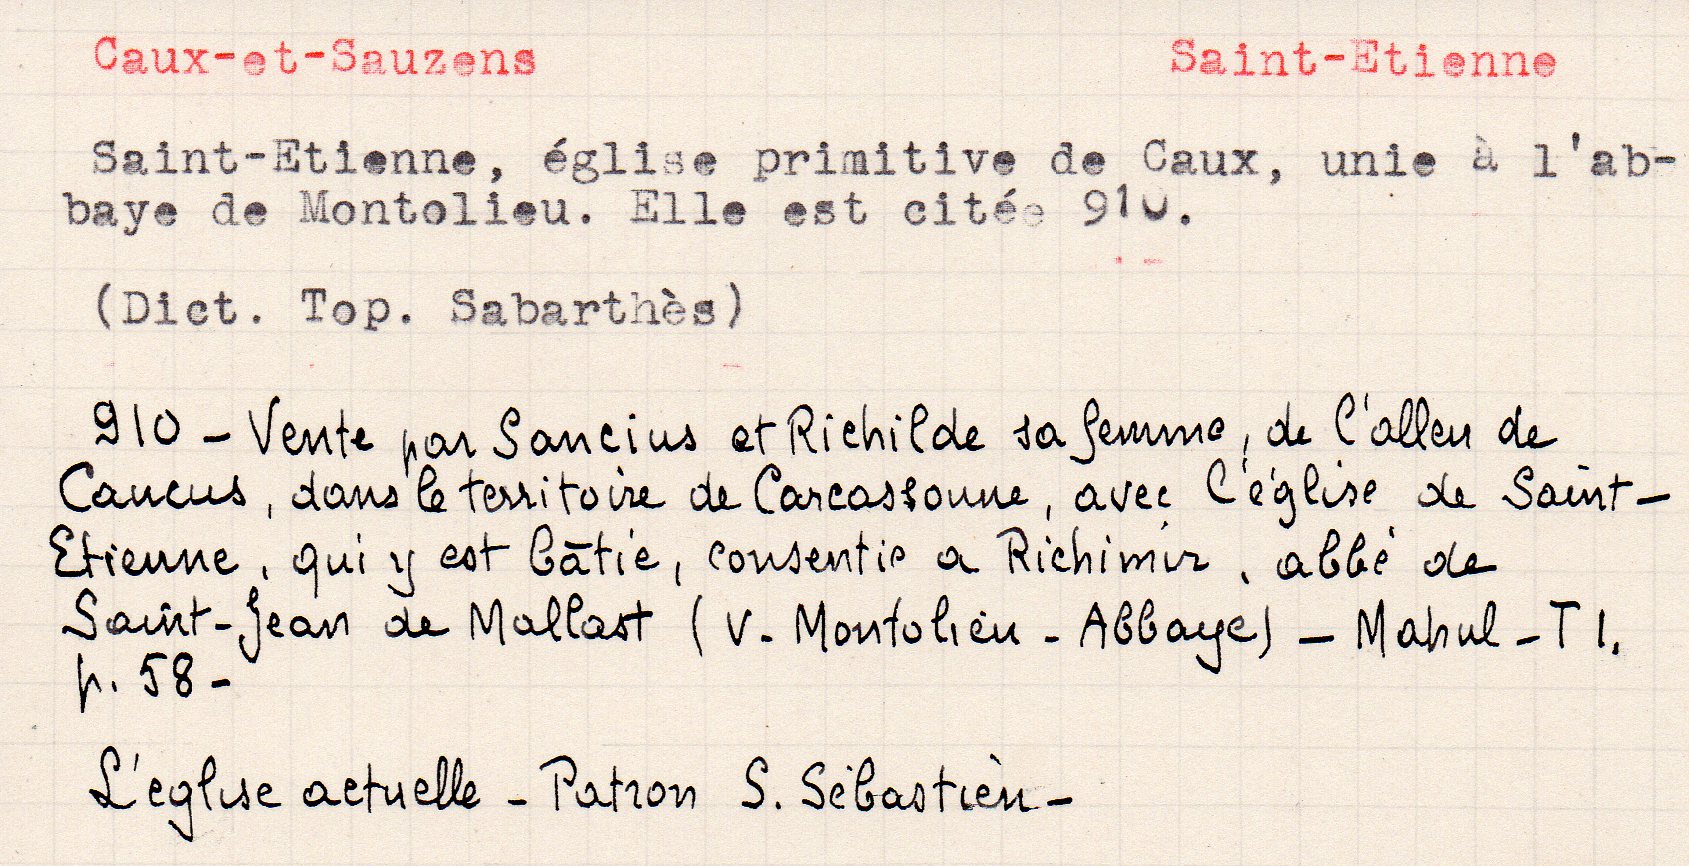 Caux-et-Sauzens Saint-Etienne
Saint-Etienne, église primitive de Caux, unie à l'ab-
baye de Montolieu. Elle est citée 910.
(Dict. Top. Sabarthès)
910 - Vente par Sancius et Richilde sa femme, de l'alleu de
Caucus, dans le territoire de Carcassonne, avec l'église de Saint-
Etienne, qui y est bâtie, consentie a Richimir, abbé de
Saint-Jean de Mallast (V. Montolieu - Abbaye) - Mahul - T 1.
p. 58 -
L'église actuelle - Patron S. Sébastien -